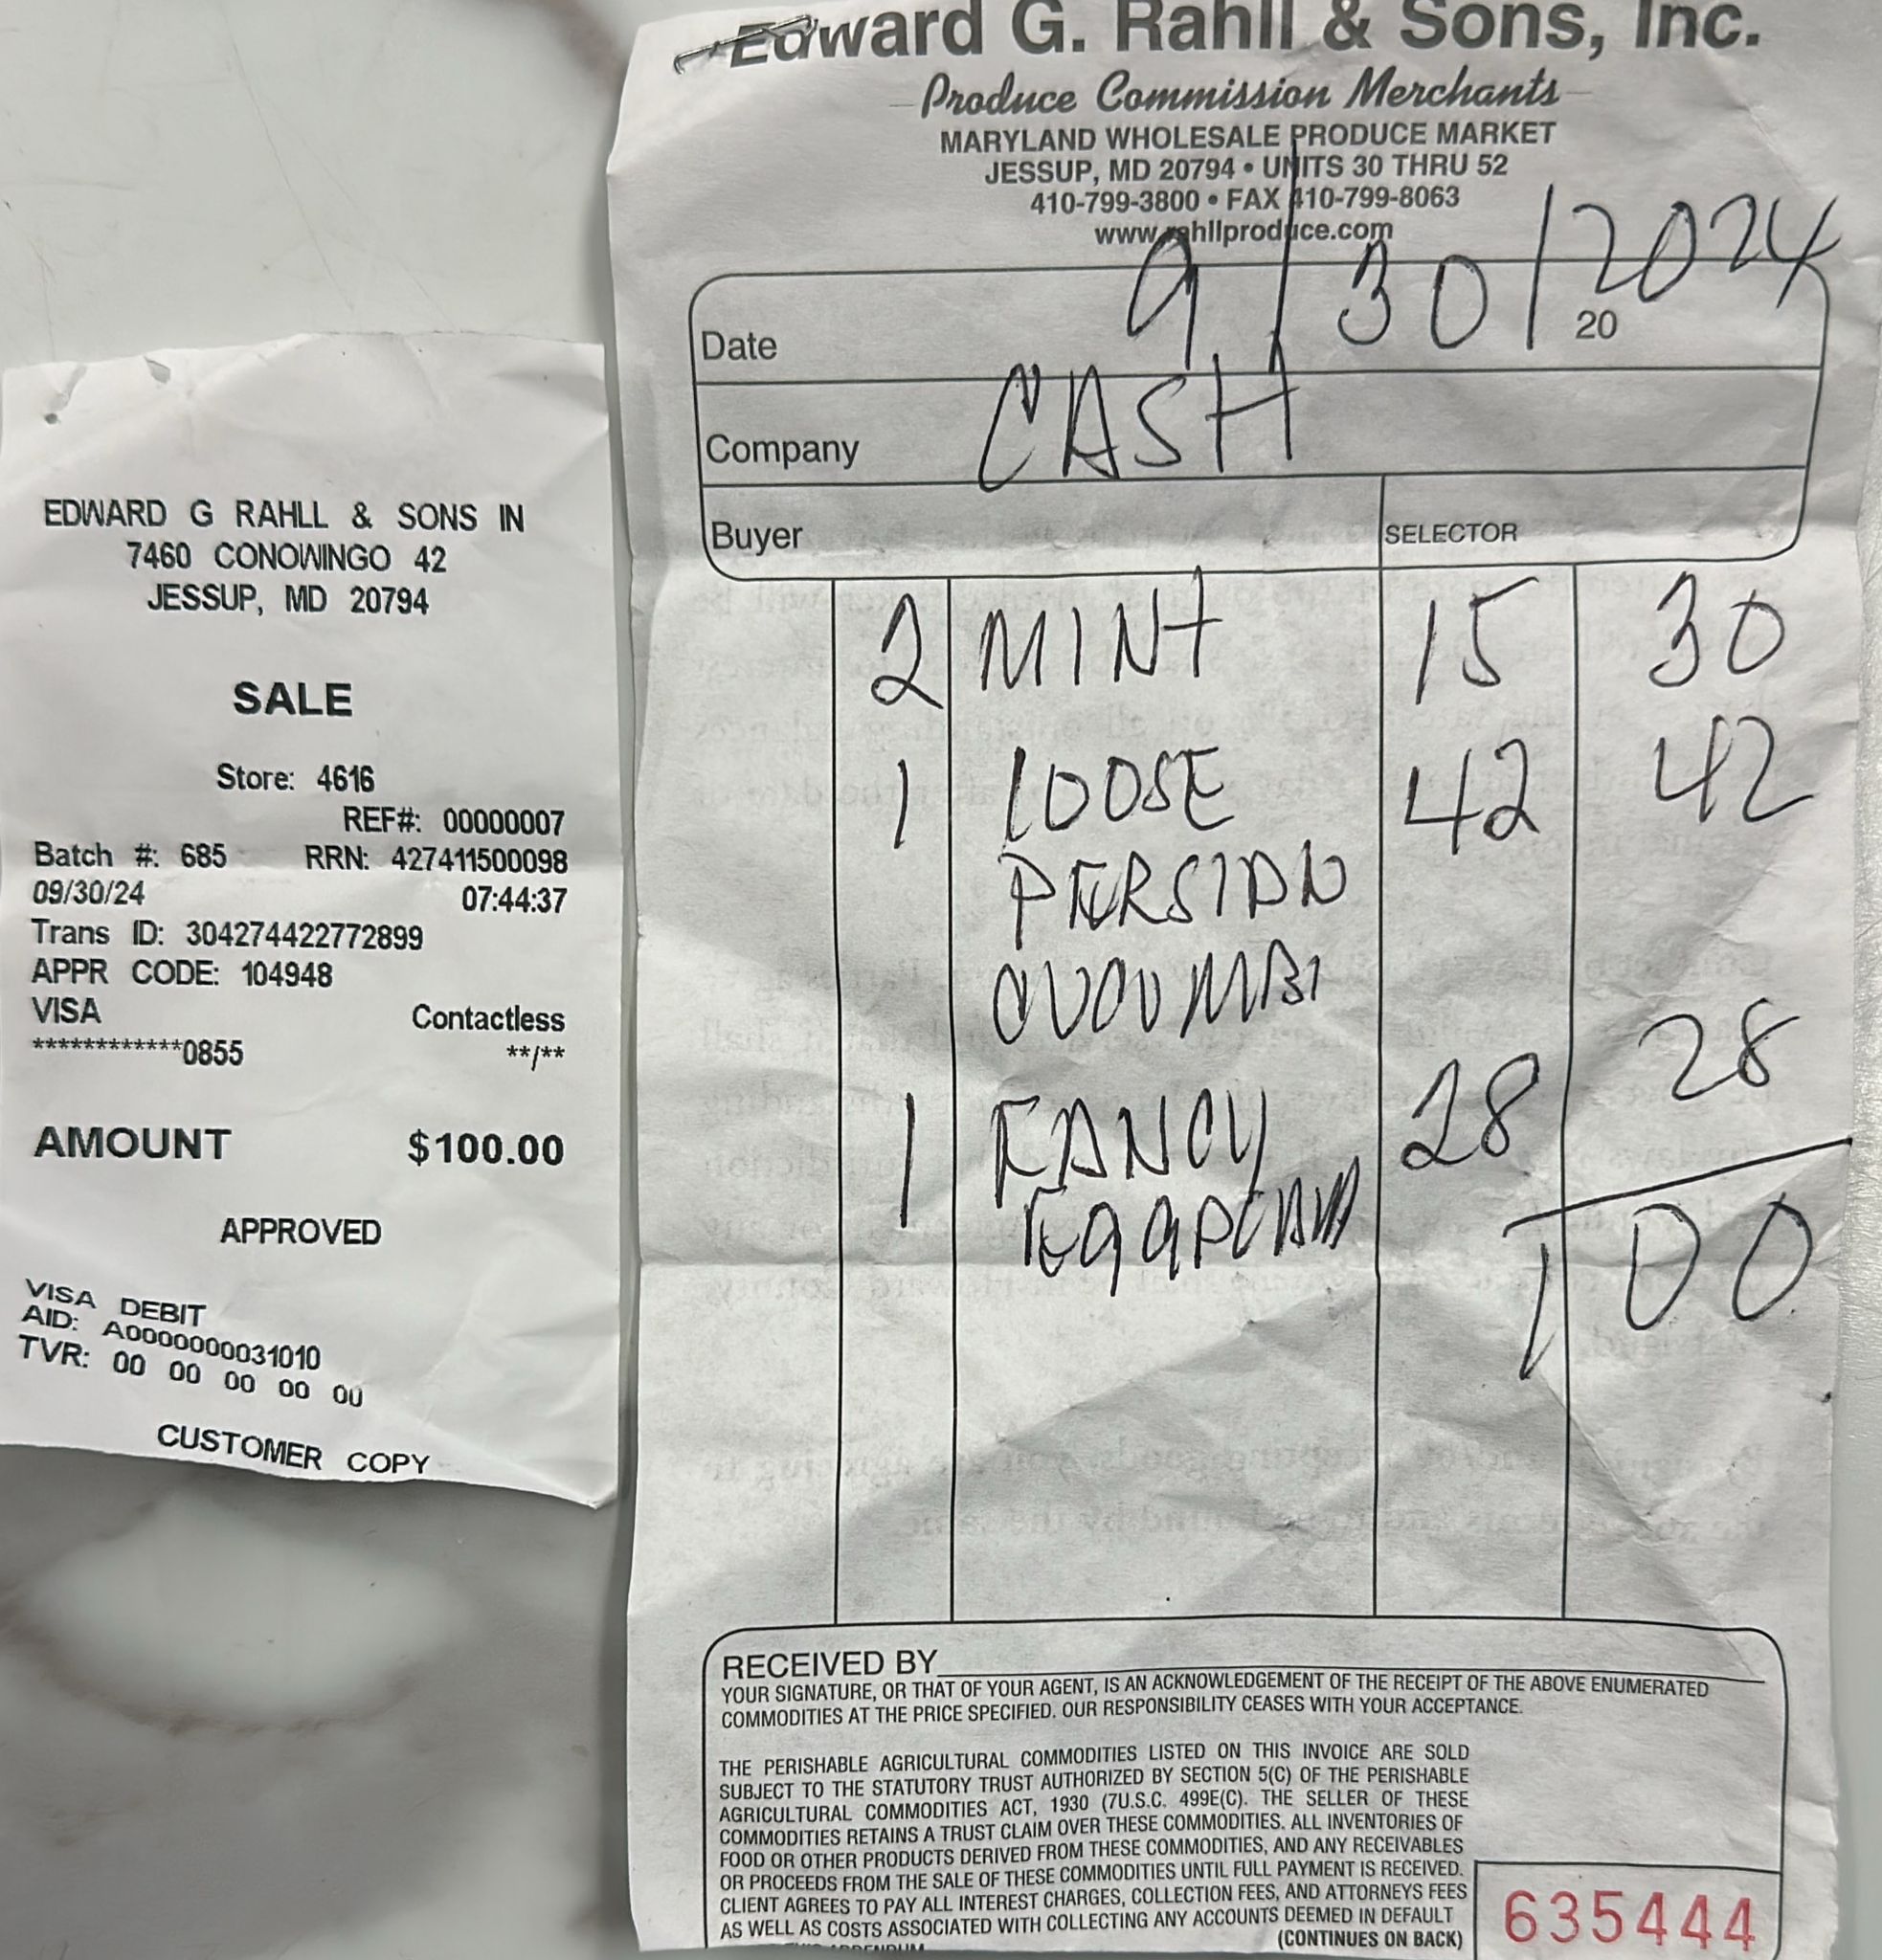 EDWARD G RAHLL & SONS IN
7460 CONOWINGO 42
JESSUP, MD 20794
SALE
Store: 4616
REF#: 00000007
Batch #: 685 RRN: 427411500098
09/30/24 07:44:37
Trans ID: 304274422772899
APPR CODE: 104948
VISA Contactless
************0855 **/**
AMOUNT $100.00
APPROVED
VISA DEBIT
AID: A0000000031010
TVR: 00 00 00 00 00
CUSTOMER COPY
Edward G. Rahll & Sons, Inc.
Produce Commission Merchants
MARYLAND WHOLESALE PRODUCE MARKET
JESSUP, MD 20794 • UNITS 30 THRU 52
410-799-3800 • FAX 410-799-8063
www.rahllproduce.com
Date 9/30/2024 20
Company CASH
Buyer SELECTOR
2 MINT 15 30
1 LOOSE 42 42
PERSIAN
1 FANCY 28 28
100
RECEIVED BY
YOUR SIGNATURE, OR THAT OF YOUR AGENT, IS AN ACKNOWLEDGEMENT OF THE RECEIPT OF THE ABOVE ENUMERATED
COMMODITIES AT THE PRICE SPECIFIED. OUR RESPONSIBILITY CEASES WITH YOUR ACCEPTANCE.
THE PERISHABLE AGRICULTURAL COMMODITIES LISTED ON THIS INVOICE ARE SOLD
SUBJECT TO THE STATUTORY TRUST AUTHORIZED BY SECTION 5(C) OF THE PERISHABLE
AGRICULTURAL COMMODITIES ACT, 1930 (7U.S.C. 499E(C). THE SELLER OF THESE
COMMODITIES RETAINS A TRUST CLAIM OVER THESE COMMODITIES. ALL INVENTORIES OF
FOOD OR OTHER PRODUCTS DERIVED FROM THESE COMMODITIES, AND ANY RECEIVABLES
OR PROCEEDS FROM THE SALE OF THESE COMMODITIES UNTIL FULL PAYMENT IS RECEIVED.
CLIENT AGREES TO PAY ALL INTEREST CHARGES, COLLECTION FEES, AND ATTORNEYS FEES
AS WELL AS COSTS ASSOCIATED WITH COLLECTING ANY ACCOUNTS DEEMED IN DEFAULT
(CONTINUES ON BACK)
635444